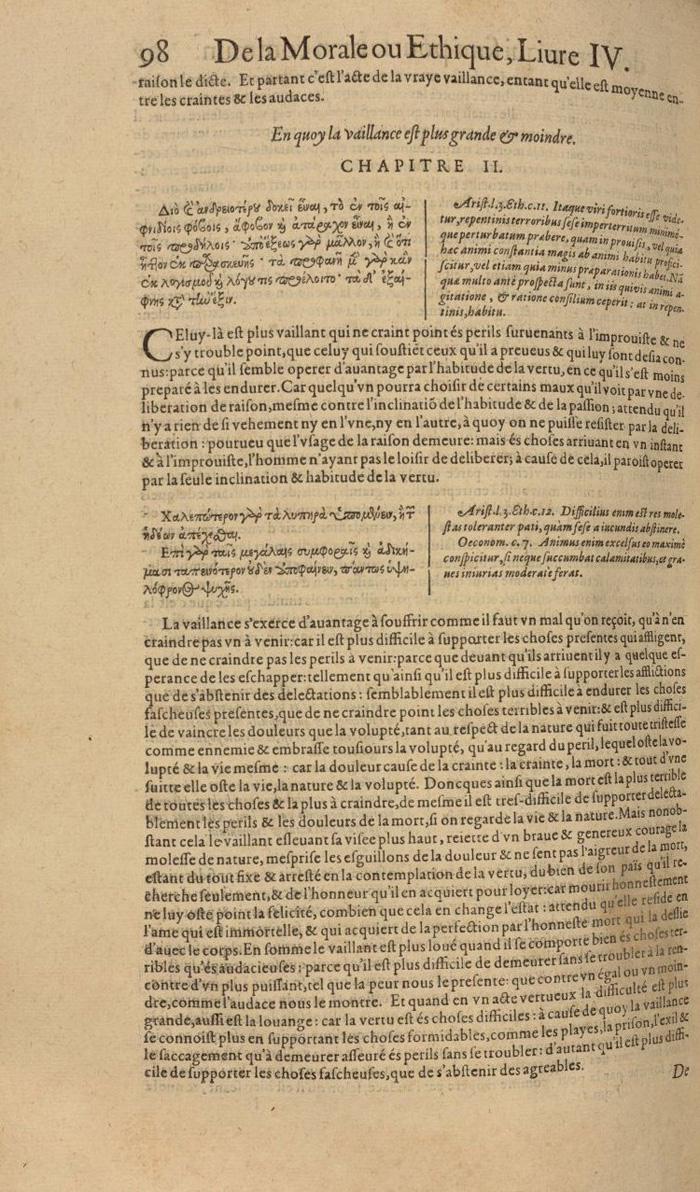 98 De la Morale ou Ethique, Liure IV.
raiſon le dicte. Et partant c'eſt l'acte de la vraye vaillance, entant qu'elle eſt moyenne en-
tre les craintes & les audaces.
En quoy la vaillance eſt plus grande & moindre.
CHAPITRE II.
Διὸ ϗ ἀνδρειοτέρȣ δοκεῖ εἶναι, τὸ ἐν τοῖς αἰ-
φνιδίοις φόβοις, ἄφοβον ϗ ἀτάραχον εἶναι, ἢ ἐν
τοῖς προδήλοις· ἀπὸ ἕξεως γὰρ μᾶλλον, ἢ ϗ ὅτι
ἧττον ἐκ παρασκευῆς· τὰ προφανῆ μ̃ γὰρ κἂν
ἐκ λογισμȣ̃ ϗ λόγȣ τις προέλοιτο· τὰ δ' ἐξαί-
φνης κτ̃ τὴν ἕξιν.
Ariſt. l. 3. Eth. c. 11. Itaque viri fortioris eſſe vide-
tur, repentinis terroribus ſeſe imperterritum minimé-
que perturbatum prabere, quam in prouiſis, vel quia
hac animi conſtantia magis ab animi habitu profici-
ſcitur, vel etiam quia minus praparationis habet. Nã
qua multo antè proſpecta ſunt, in iis quivis animi a-
gitatione, & ratione conſilium ceperit: at in repen-
tinis, habitu.
CEluy-là eſt plus vaillant qui ne craint point és perils ſuruenants à l'improuiſte & ne
s'y trouble point, que celuy qui ſouſtiēt ceux qu'il a preueus & qui luy ſont deſia con-
nus: parce qu'il ſemble operer d'auantage par l'habitude de la vertu, en ce qu'il s'eſt moins
preparé à les endurer. Car quelqu'vn pourra choiſir de certains maux qu'il voit par vne de-
liberation de raiſon, meſme contre l'inclinatiō de l'habitude & de la paſſion; attendu qu'il
n'y a rien de ſi vehement ny en l'vne, ny en l'autre, à quoy on ne puiſſe reſiſter par la deli-
beration: pourueu que l'vſage de la raiſon demeure: mais és choſes arriuant en vn inſtant
& à l'improuiſte, l'homme n'ayant pas le loiſir de deliberer; à cauſe de cela, il paroiſt operer
par la ſeule inclination & habitude de la vertu.
Χαλεπώτερον γὰρ τὰ λυπηρὰ ὑπομένειν, ἢ τ̃
ἡδέων ἀπέχεσθαι.
Ἐπὶ γὰρ ταῖς μεγάλαις συμφοραῖς ϗ ἀδική-
μασι ταπεινότερον ȣ̓δὲν ὑποφαίνειν, πάντως ὑψη-
λόφρονος ψυχῆς.
Ariſt. l. 3. Eth. c. 12. Difficilius enim eſt res mole-
ſtas toleranter pati, quàm ſeſe a iucundis abſtinere.
Oeconom. c. 7. Animus enim excelſus eo maximè
conſpicitur, ſi neque ſuccumbat calamitatibus, et gra-
ues iniurias moderatè ferat.
La vaillance s'exerce d'auantage à ſouffrir comme il faut vn mal qu'on reçoit, qu'à n'en
craindre pas vn à venir: car il eſt plus difficile à ſupporter les choſes preſentes qui affligent,
que de ne craindre pas les perils à venir: parce que deuant qu'ils arriuent il y a quelque eſ-
perance de les eſchapper: tellement qu'ainſi qu'il eſt plus difficile à ſupporter les afflictions
que de s'abſtenir des delectations: ſemblablement il eſt plus difficile à endurer les choſes
faſcheuſes preſentes, que de ne craindre point les choſes terribles à venir: & eſt plus diffici-
le de vaincre les douleurs que la volupté, tant au reſpect de la nature qui fuit toute triſteſſe
comme ennemie & embraſſe touſiours la volupté, qu'au regard du peril, lequel oſte la vo-
lupté & la vie meſme: car la douleur cauſe de la crainte: la crainte, la mort: & tout d'vne
ſuitte elle oſte la vie, la nature & la volupté. Doncques ainſi que la mort eſt la plus terrible
de toutes les choſes & la plus à craindre, de meſme il eſt treſ-difficile de ſupporter delecta-
blement les perils & les douleurs de la mort, ſi on regarde la vie & la nature. Mais nonob-
ſtant cela le vaillant eſleuant ſa viſee plus haut, reiette d'vn braue & genereux courage la
moleſſe de nature, meſpriſe les eſguillons de la douleur & ne ſent pas l'aigreur de la mort,
eſtant du tout fixe & arreſté en la contemplation de la vertu, du bien de ſon païs qu'il re-
cherche ſeulement, & de l'honneur qu'il en acquiert pour loyer: car mourir honneſtement
ne luy oſte point la felicité, combien que cela en change l'eſtat: attendu qu'elle reſide en
l'ame qui eſt immortelle, & qui acquiert de la perfection par l'honneſte mort qui la deſlie
d'auec le corps. En ſomme le vaillant eſt plus loué quand il ſe comporte bien és choſes ter-
ribles qu'és audacieuſes: parce qu'il eſt plus difficile de demeurer ſans ſe troubler à la ren-
contre d'vn plus puiſſant, tel que la peur nous le preſente: que contre vn égal ou vn moin-
dre, comme l'audace nous le montre. Et quand en vn acte vertueux la difficulté eſt plus
grande, auſſi eſt la louange: car la vertu eſt és choſes difficiles: à cauſe de quoy la vaillance
ſe connoiſt plus en ſupportant les choſes formidables, comme les playes, la priſon, l'exil &
le ſaccagement qu'à demeurer aſſeuré és perils ſans ſe troubler: d'autant qu'il eſt plus diffi-
cile de ſupporter les choſes faſcheuſes, que de s'abſtenir des agreables.
De